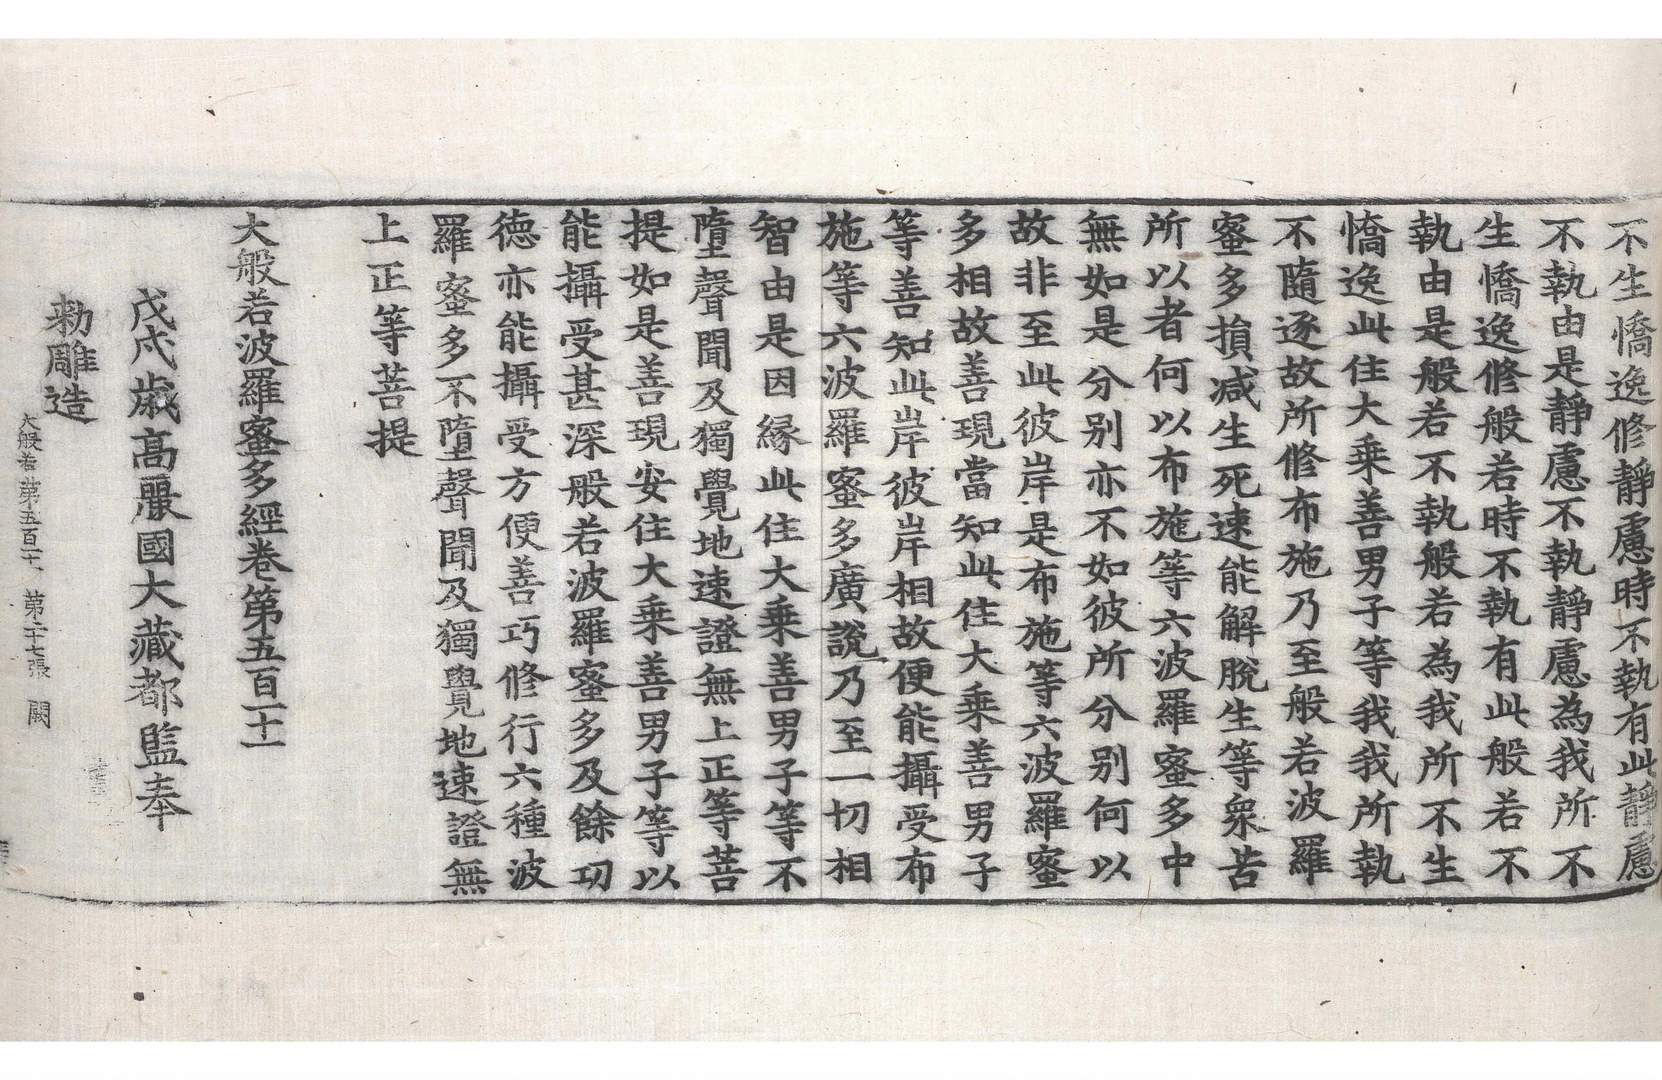 不生憍逸修靜慮時不執有此靜慮
不執由是靜慮不執靜慮為我所不
生憍逸修般若時不執有此般若不
執由是般若不執般若為我所不生
憍逸此住大乘善男子等我我所執
不隨逐故所修布施乃至般若波羅
蜜多損減生死速能解脫生等衆苦
所以者何以布施等六波羅蜜多中
無如是分別亦不如彼所分別何以
故非至此彼岸是布施等六波羅蜜
多相故善現當知此住大乘善男子
等善知此岸彼岸相故便能攝受布
施等六波羅蜜多廣說乃至一切相
智由是因縁此住大乘善男子等不
墮聲聞及獨覺地速證無上正等菩
提如是善現安住大乘善男子等以
能攝受甚深般若波羅蜜多及餘㓛
德亦能攝受方便善巧修行六種波
羅蜜多不墮聲聞及獨覺地速證無
上正等菩提
大般若波羅蜜多經卷第五百一十一
戊戌歲高麗國大藏都監奉
勅雕造
大般若第五百一十一 第二十七張 闕